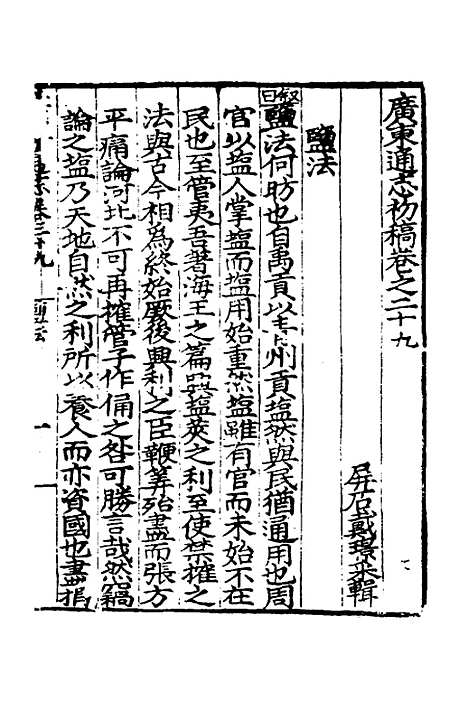 廣東通志初稿卷之二十九
屏石戴璟采輯
鹽法
叙曰鹽法何昉也自禹貢以青州貢塩然與民猶通用也周
官以塩人掌塩而塩用始重然塩雖有官而未始不在
民也至管夷吾著海王之篇興塩莢之利至使禁搉之
法與古今相為終始厥後興利之臣鞭筭殆盡而張方
平痛論河北不可再搉管子作俑之咎可勝言哉然竊
論之塩乃天地自然之利所以養人而亦資國也盡捐
卷二十九
一